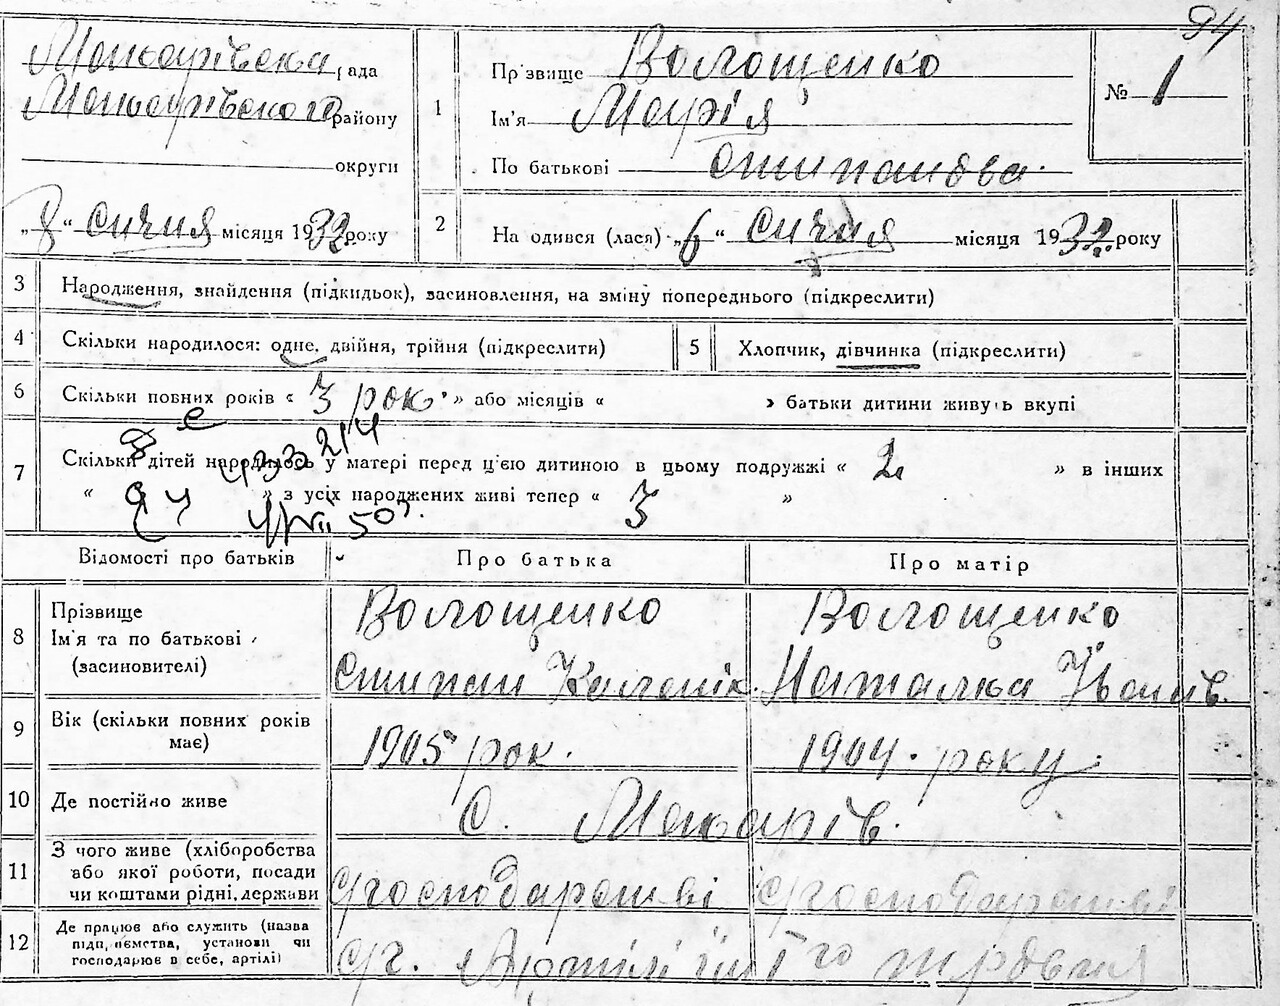 94
Макарівська рада
Макарівського району
округи
„8“ Січня місяця 1932 року
1
Прізвище Волощенко
Ім'я Марія
По батькові Стипанова
№ 1
2
На одився (лася) „6“ Січня місяця 1932 року
3 Народження, знайдення (підкидьок), засиновлення, на зміну попереднього (підкреслити)
4 Скільки народилося: одне, двійня, трійня (підкреслити)
5 Хлопчик, дівчинка (підкреслити)
6 Скільки повних років « 3 рок » або місяців « » батьки дитини живуть вкупі
7 Скільки дітей народилось у матері перед ц'ею дитиною в цьому подружжі « 2 » в інших
« » з усіх народжених живі тепер « 3 »
Відомості про батьків Про батька Про матір
8 Прізвище
Ім'я та по батькові
(засиновителі)
Волощенко
Стипан Каленік.
Волощенко
Наталка Іванів.
9 Вік (скільки повних років
має)
1905 рок. 1904. року.
10 Де постійно живе с. Макарів.
11 З чого живе (хліборобства
або якої роботи, посади
чи коштами рідні, держави
с/господарстві с/господарстві
12 Де працює або служить (назва
підприємства, установи чи
господарює в себе, артілі)
с/г. Артілі ім 1го травня